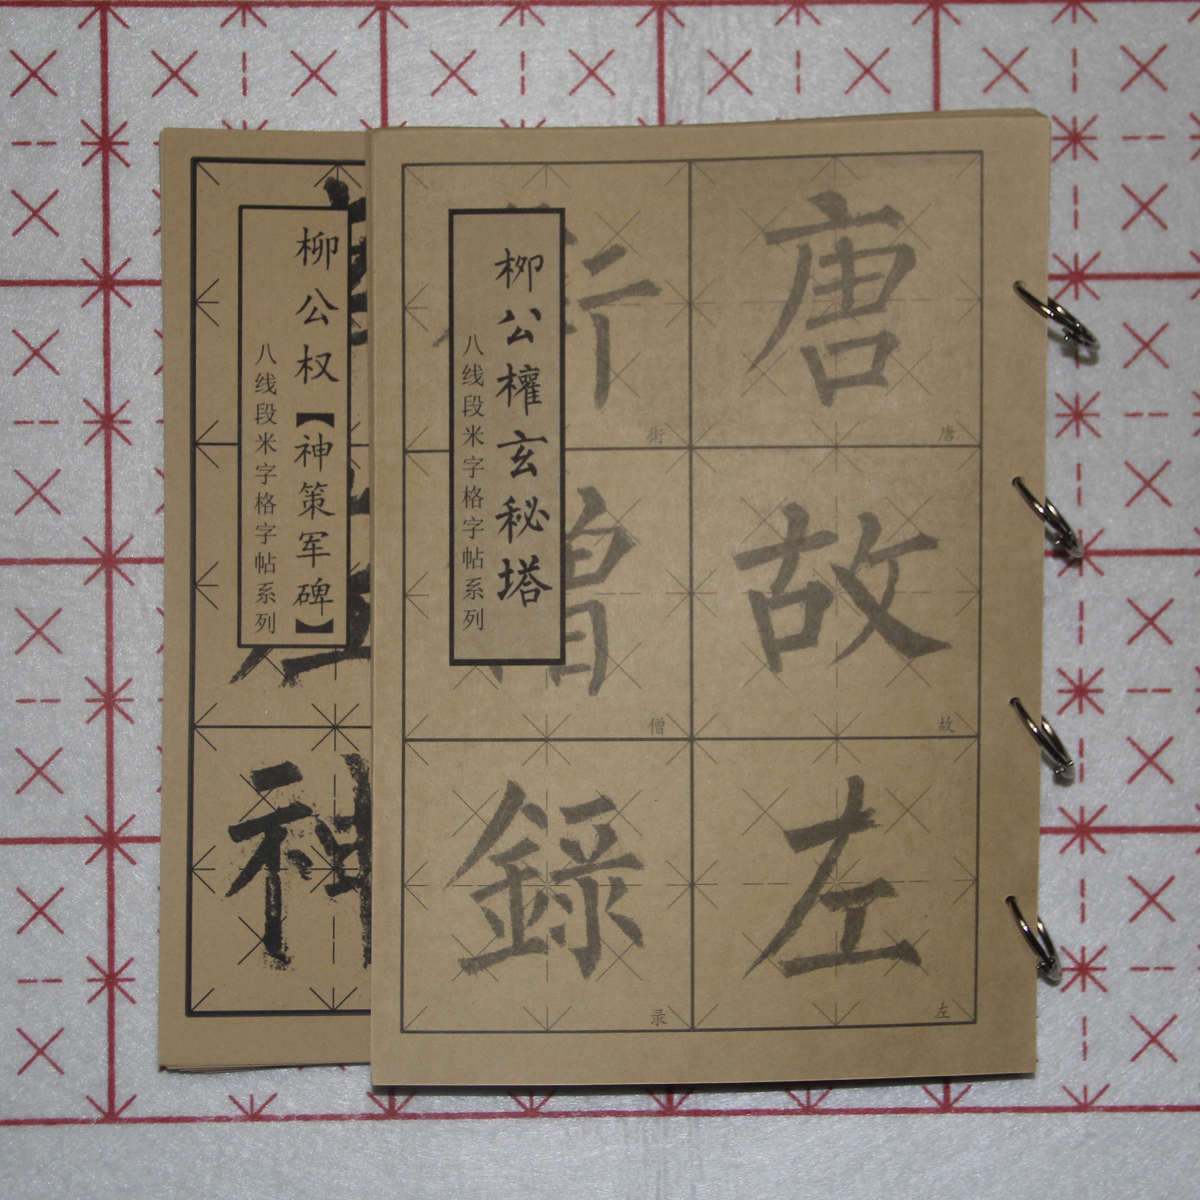 柳公权【神策军碑】
八线段米字格字帖系列
神
柳公權玄秘塔
八线段米字格字帖系列
唐
唐
故
故
左
左
街
僧
僧
錄
录